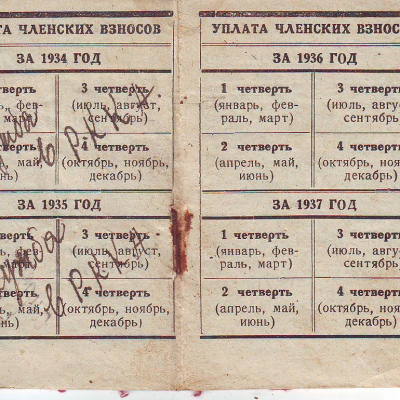 ТА ЧЛЕНСКИХ ВЗНОСОВ
ЗА 1934 ГОД
3 четверть
(июль, август,
сентябрь)
4 четверть
(октябрь, ноябрь,
декабрь)
в Р.К.К.А.
ЗА 1935 ГОД
3 четверть
(июль, август,
сентябрь)
4 четверть
(октябрь, ноябрь,
декабрь)
в Р.К.К.А.
УПЛАТА ЧЛЕНСКИХ ВЗНОСОВ
ЗА 1936 ГОД
1 четверть
(январь, фев-
раль, март)
3 четверть
(июль, август
сентябрь)
2 четверть
(апрель, май,
июнь)
4 четверть
(октябрь, ноябрь
декабрь)
ЗА 1937 ГОД
1 четверть
(январь, фев-
раль, март)
3 четверть
(июль, август
сентябрь)
2 четверть
(апрель, май,
июнь)
4 четверть
(октябрь, ноябрь
декабрь)